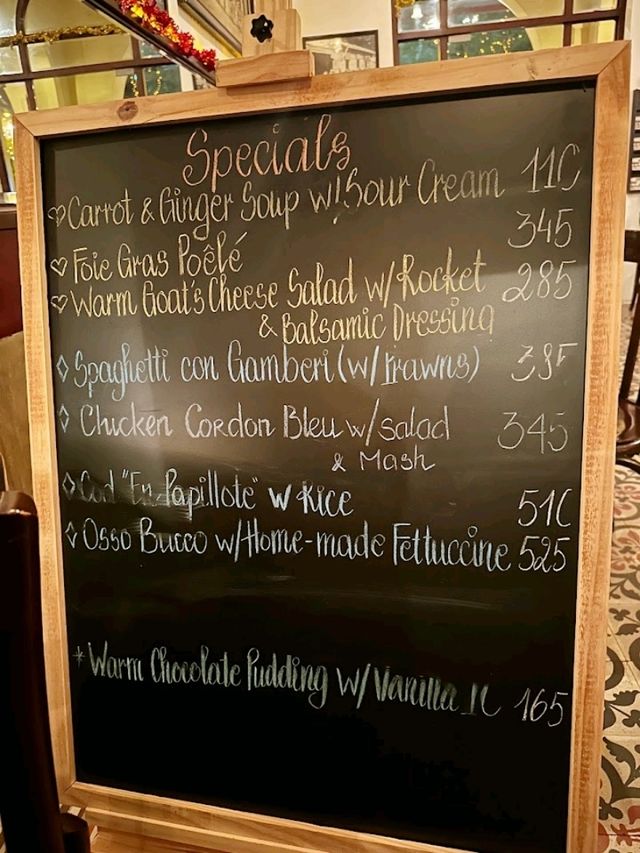 Specials
Carrot & Ginger Soup w/ Sour Cream 110
345
Foie Gras Poêlé
Warm Goat's Cheese Salad w/ Rocket 285
& Balsamic Dressing
Spaghetti con Gamberi (w/ Prawns)
Chicken Cordon Bleu w/ salad 345
& Mash
Cod "En Papillote" w Rice 510
Osso Bucco w/ Home-made Fettuccine 525
Warm Chocolate Pudding w/ Vanilla IC 165